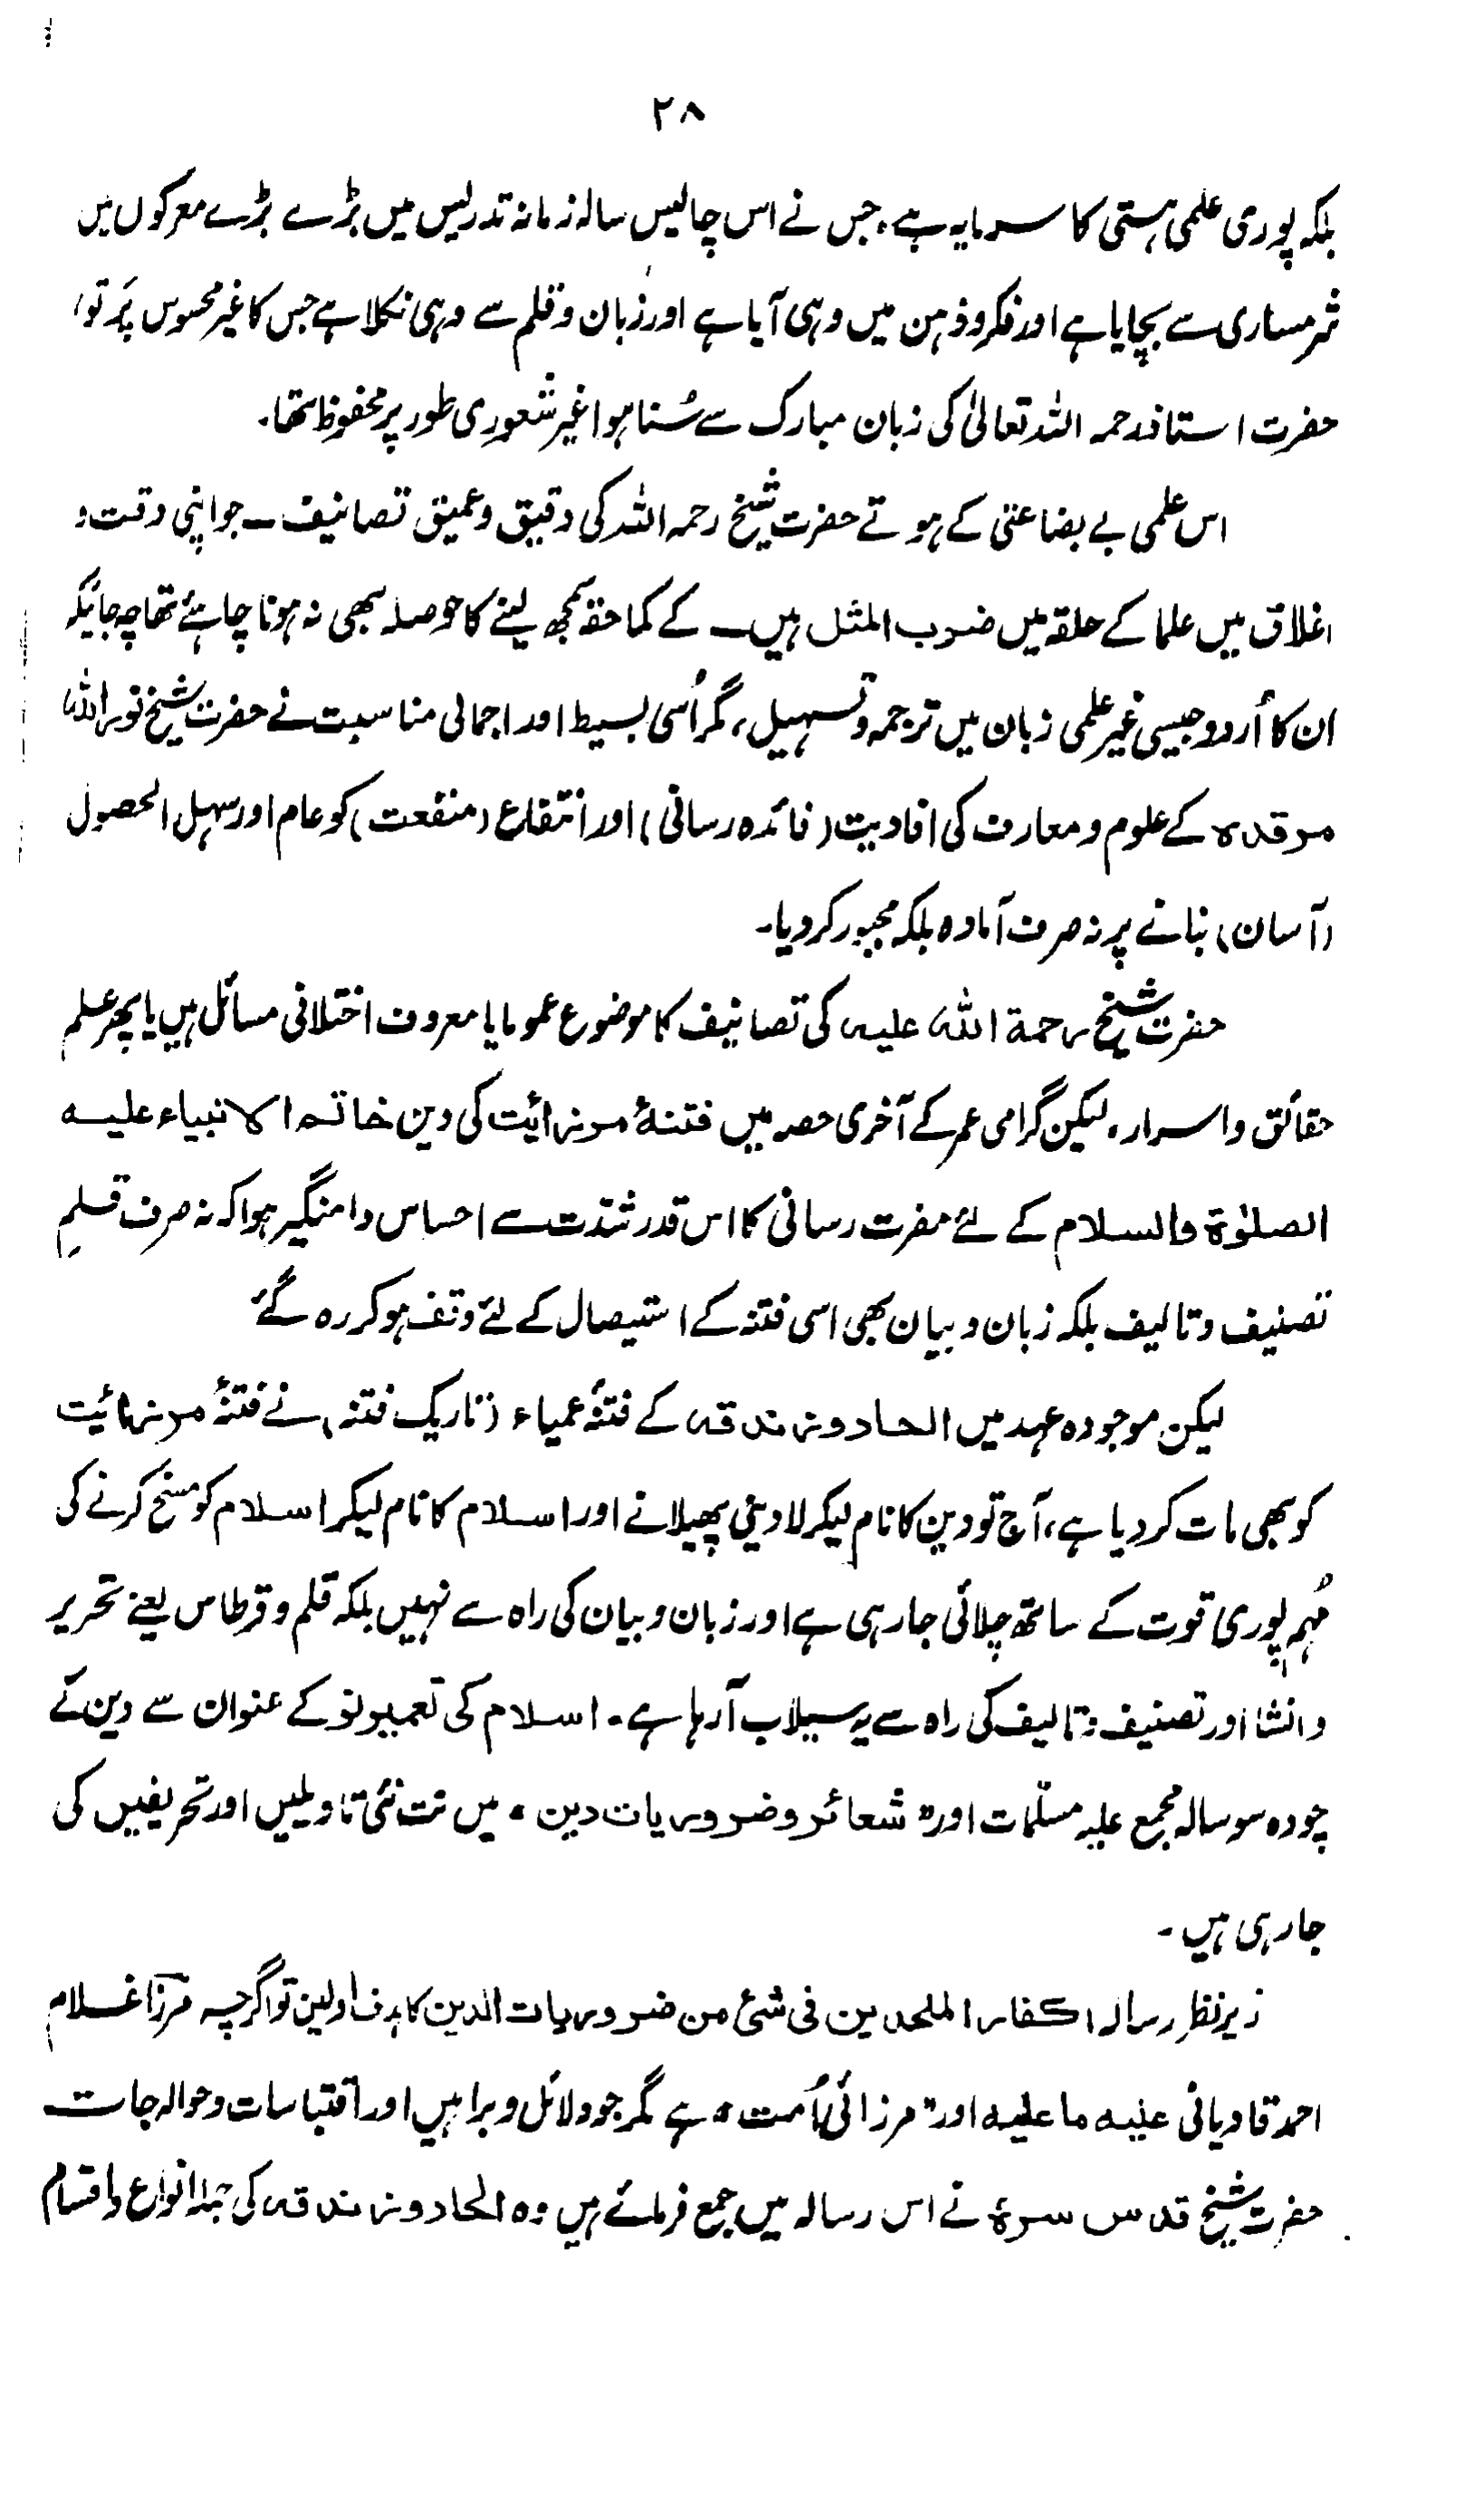 ۲۸
بلکہ پوری علمی ہستی کا سرمایہ ہے، جس نے اس چالیس سالہ زمانہ تدریس میں بڑے بڑے معرکوں میں
شرمساری سے بچایا ہے اور فکر و ذہن میں وہی آیا ہے اور زبان و قلم سے وہی نکلا ہے جس کا غیر محسوس پرتو،
حضرت استاذ رحمہ اللہ تعالیٰ کی زبان مبارک سے سُنا ہوا غیر شعوری طور پر محفوظ تھا۔
اس علمی بے بضاعتی کے ہوتے حضرت شیخ رحمہ اللہ کی دقیق و عمیق تصانیف ــ جو اپنی دقت و
اغلاق میں علما کے حلقہ میں ضرب المثل ہیں ــ کے کماحقہٗ سمجھ لینے کا حوصلہ بھی نہ ہونا چاہئے تھا چہ جائیکہ
ان کا اُردو جیسی غیر علمی زبان میں ترجمہ و تسہیل، مگر اُسی بسیط اور اجمالی مناسبت نے حضرت شیخ نور اللہ
مرقدہ کے علوم و معارف کی افادیت (فائدہ رسانی) اور انتفاع (منفعت) کو عام اور سہل الحصول
(آسان) بنانے پر نہ صرف آمادہ بلکہ مجبور کر دیا۔
حضرت شیخ رحمۃ اللہ علیہ کی تصانیف کا موضوع عموما یا معروف اختلافی مسائل ہیں یا پھر علم
حقائق و اسرار، لیکن گرامی عمر کے آخری حصہ میں فتنۂ مرزائیت کی دین خاتم الانبیاء علیہ
الصلوٰۃ والسلام کے لئے مضرت رسانی کا اس قدر شدت سے احساس دامنگیر ہوا کہ نہ صرف قلمِ
تصنیف و تالیف بلکہ زبان و بیان بھی اسی فتنہ کے استیصال کے لئے وقف ہو کر رہ گئے
لیکن موجودہ عہد میں الحاد و زندقہ کے فتنۂ عمیاء (تاریک فتنہ) نے فتنۂ مرزائیت
کو بھی مات کر دیا ہے، آج تو دین کا نام لیکر لادینی پھیلانے اور اسلام کا نام لیکر اسلام کو مسخ کرنے کی
مُہم پوری قوت کے ساتھ چلائی جا رہی ہے اور زبان و بیان کی راہ سے نہیں بلکہ قلم و قرطاس یعنے تحریر
و انشا اور تصنیف و تالیف کی راہ سے یہ سیلاب آ رہا ہے۔ اسلام کی تعمیر نو کے عنوان سے دین کے
چودہ سو سالہ مجمع علیہ مسلّمات اور "شعائر و ضروریات دین" میں نت نئی تاویلیں اور تحریفیں کی
جا رہی ہیں۔
زیر نظر رسالہ اکفار الملحدین فی شئ من ضروریات الدین کا ہدف اولین تو اگرچہ مرزا غلام
احمد قادیانی علیہ ما علیہ اور "مرزائی اُمت" ہے مگر جو دلائل و براہین اور اقتباسات و حوالہ جات
حضرت شیخ قدس سرہٗ نے اس رسالہ میں جمع فرمائے ہیں وہ الحاد و زندقہ کی جملہ انواع و اقسام